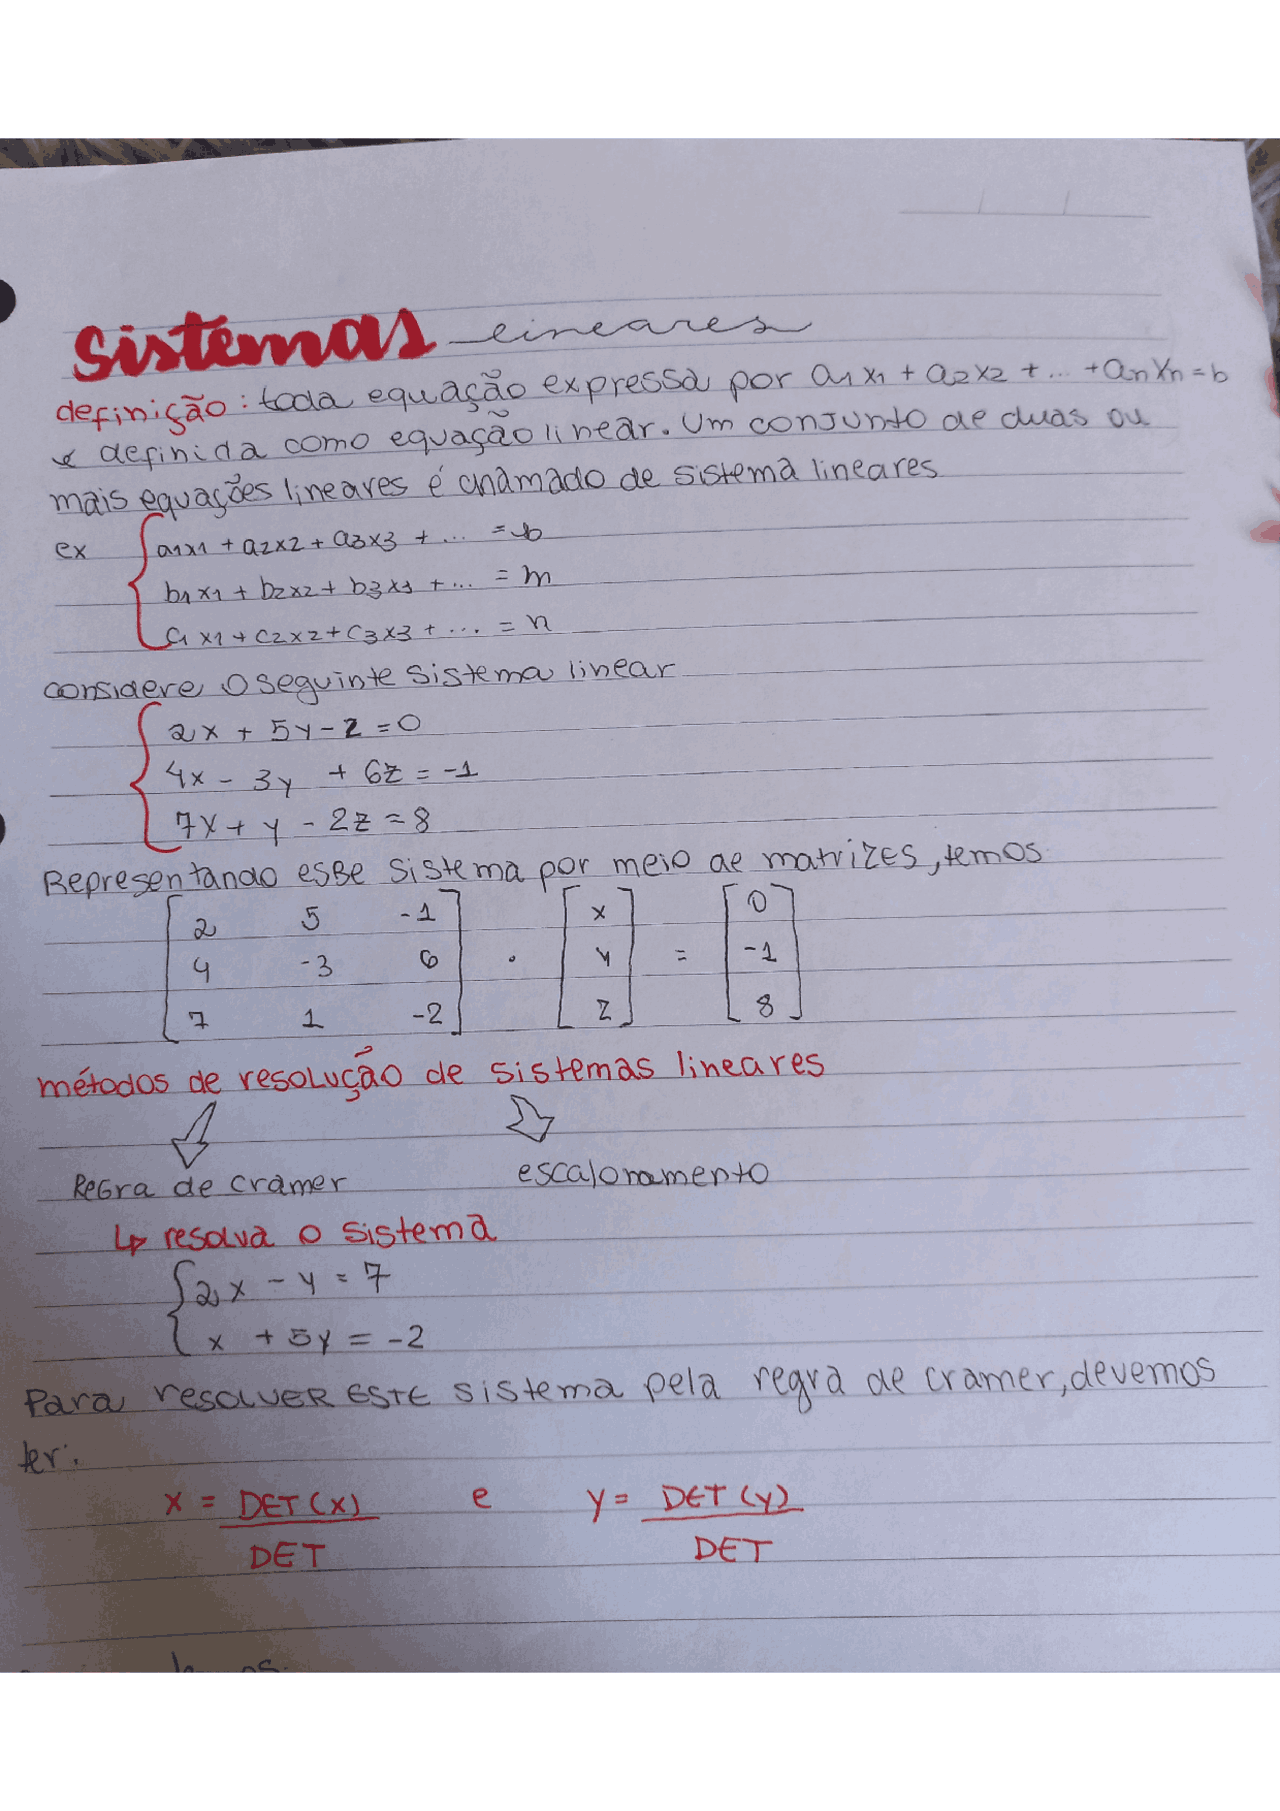 Sistemas lineares
definição: toda equação expressa por a1x1 + a2x2 + ... + anxn = b
é definida como equação linear. Um conjunto de duas ou
mais equações lineares é chamado de sistema lineares
ex { a1x1 + a2x2 + a3x3 + ... = b
b1x1 + b2x2 + b3x3 + ... = m
c1x1 + c2x2 + c3x3 + ... = n
considere o seguinte sistema linear
{ 2x + 5y - z = 0
4x - 3y + 6z = -1
7x + y - 2z = 8
Representando esse sistema por meio de matrizes, temos
[ 2 5 -1 ] [ x ] [ 0 ]
[ 4 -3 6 ] . [ y ] = [ -1 ]
[ 7 1 -2 ] [ z ] [ 8 ]
métodos de resolução de sistemas lineares
Regra de cramer escalonamento
↳ resolva o sistema
{ 2x - y = 7
x + 5y = -2
Para resolver este sistema pela regra de cramer, devemos
ter:
x = DET(x) e y = DET(y)
DET DET